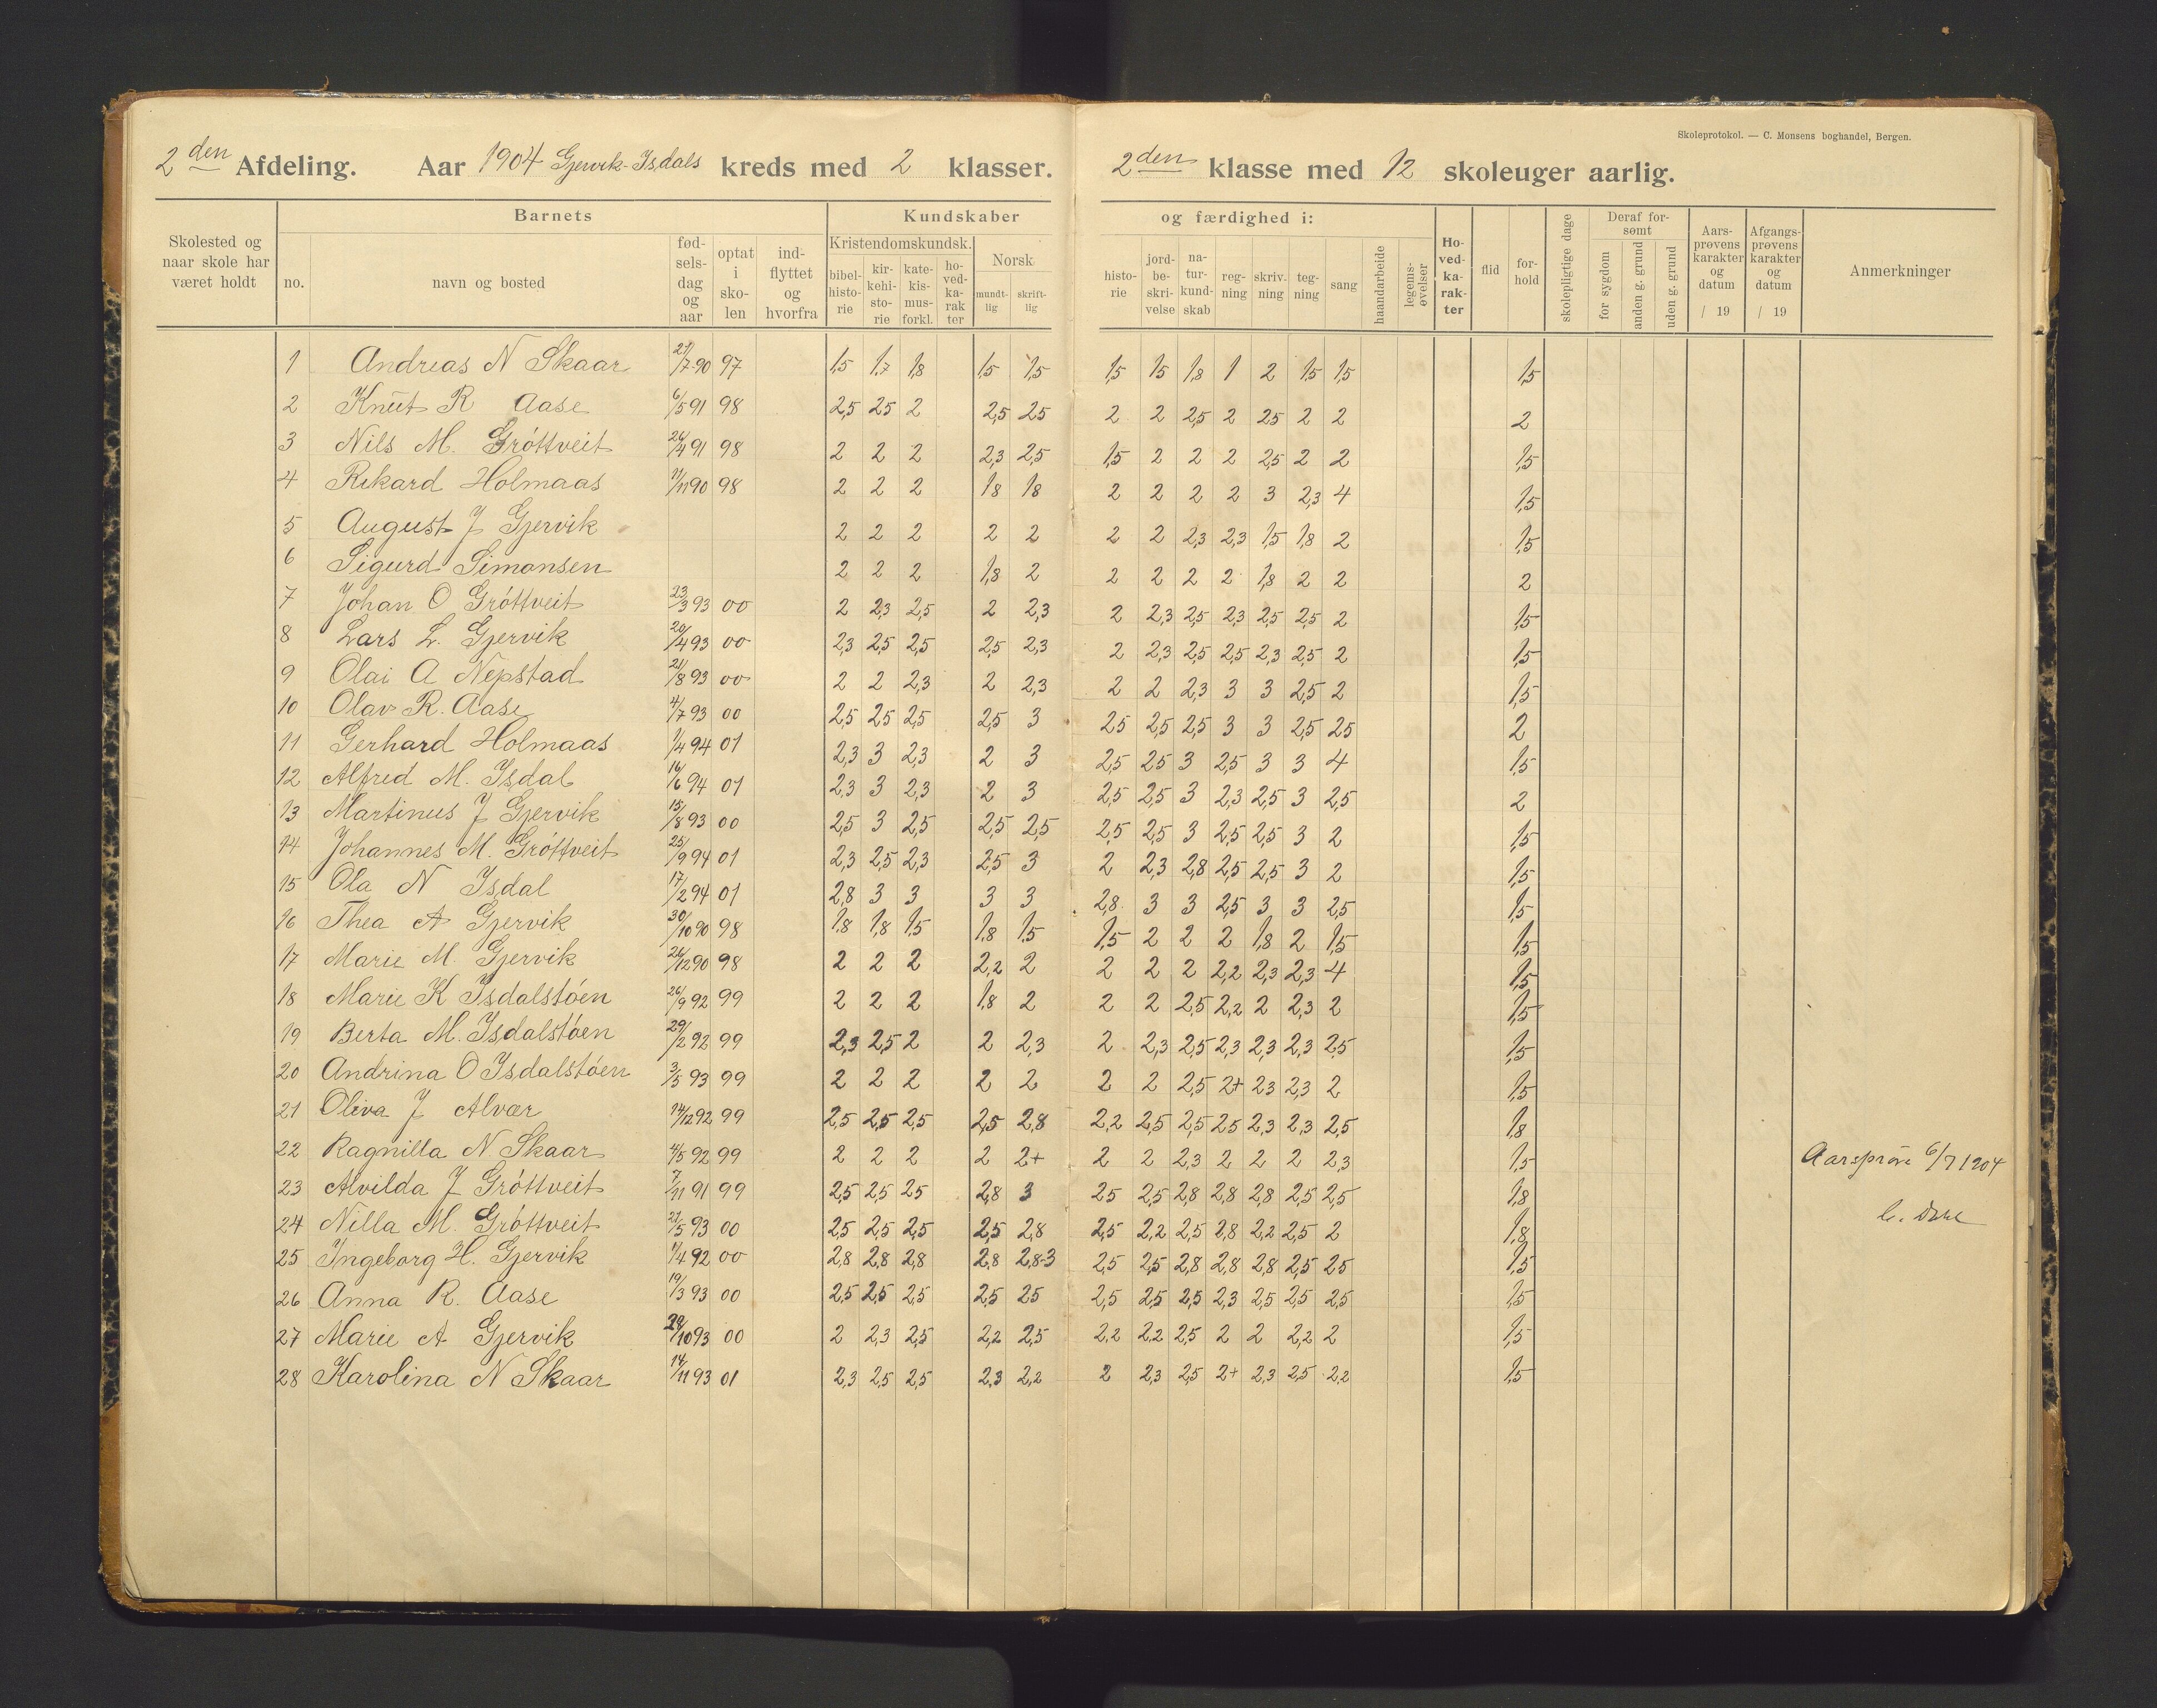 Skoleprotokol. — C. Monsens boghandel, Bergen.
2den Afdeling. Aar 1904 Gjervik-Isdals kreds med 2 klasser. 2den klasse med 12 skoleuger aarlig.
Skolested og naar skole har været holdt
Barnets
no. navn og bosted fødselsdag og aar optat i skolen indflyttet og hvorfra
Kundskaber og færdighed i:
Kristendomskundsk. bibelhistorie kirkehistorie katekismusforkl. hovedkarakter
Norsk mundtlig skriftlig
historie jordbeskrivelse naturkundskab regning skrivning tegning sang haandarbeide legemsøvelser
Hovedkarakter flid forhold skolepligtige dage
Deraf forsømt for sygdom anden g. grund uden g. grund
Aarsprøvens karakter og datum / 19
Afgangsprøvens karakter og datum / 19
Anmerkninger
1 Andreas N Skaar 21/7 90 97 1,5 1,7 1,8 1,5 1,5 1,5 1,5 1,8 1 2 1,5 1,5 1,5
2 Knut R Aase 6/5 91 98 2,5 2,5 2 2,5 2,5 2 2 2,5 2 2,5 2 2 2
3 Nils M. Gróttveit 26/4 91 98 2 2 2 2,3 2,5 1,5 2 2 2 2,5 2 2 1,5
4 Rikard Holmaas 1/11 90 98 2 2 2 1,8 1,8 2 2 2 2 3 2,3 4 1,5
5 August J Gjervik 2 2 2 2 2 2 2 2,3 2,3 1,5 1,8 2 1,5
6 Sigurd Simonsen 2 2 2 1,8 2 2 2 2 2 1,8 2 2 2
7 Johan O Gróttveit 23/3 93 00 2 2,3 2,5 2 2,3 2 2,3 2,5 2,3 2,5 2,5 2 1,5
8 Lars L. Gjervik 20/4 93 00 2,3 2,5 2,5 2,5 2,3 2 2,3 2,5 2,5 2,3 2,5 2 1,5
9 Olai A Nepstad 21/8 93 00 2 2 2,3 2 2,3 2 2 2,3 3 3 2,5 2 1,5
10 Olav R. Aase 4/7 93 00 2,5 2,5 2,5 2,5 3 2,5 2,5 2,5 3 3 2,5 2,5 2
11 Gerhard Holmaas 1/4 94 01 2,3 3 2,3 2 3 2,5 2,5 3 2,5 3 3 4 1,5
12 Alfred M. Isdal 16/6 94 01 2,3 3 2,3 2 3 2,5 2,5 3 2,3 2,5 3 2,5 2
13 Martinus J Gjervik 15/8 93 00 2,5 3 2,5 2,5 2,5 2,5 2,5 3 2,5 2,5 3 2 1,5
14 Johannes M. Gróttveit 25/9 94 01 2,3 2,5 2,3 2,5 3 2 2,3 2,8 2,5 2,5 3 2 1,5
15 Ola N Isdal 17/2 94 01 2,8 3 3 3 3 2,8 3 3 2,5 3 3 2,5 1,5
16 Thea A Gjervik 30/10 90 98 1,8 1,8 1,5 1,8 1,5 1,5 2 2 2 1,8 2 1,5 1,5
17 Marie M. Gjervik 26/12 90 98 2 2 2 2,2 2 2 2 2 2,2 2,3 2,3 4 1,5
18 Marie K Isdalstóen 26/9 92 99 2 2 2 1,8 2 2 2 2,5 2,2 2 2,3 2 1,5
19 Berta M. Isdalstóen 29/2 92 99 2,3 2,5 2 2 2,3 2 2,3 2,5 2,3 2,3 2,3 2,5 1,5
20 Andrina O Isdalstóen 3/5 93 99 2 2 2 2 2 2 2 2,5 2+ 2,3 2,3 2 1,5
21 Oliva J Alvær 14/12 92 99 2,5 2,5 2,5 2,5 2,8 2,2 2,5 2,5 2,5 2,3 2,3 2,5 1,8
22 Ragnilla N. Skaar 4/5 92 99 2 2 2 2 2+ 2 2 2,3 2 2 2 2,3 1,5 Aarsprøve 6/7 1904
23 Alvilda J Gróttveit 7/11 91 99 2,5 2,5 2,5 2,8 3 2,5 2,5 2,8 2,8 2,8 2,5 2,5 1,8
24 Nilla M. Gróttveit 21/5 93 00 2,5 2,5 2,5 2,5 2,8 2,5 2,2 2,5 2,8 2,2 2,5 2 1,8
25 Ingeborg H. Gjervik 1/4 92 00 2,8 2,8 2,8 2,8 2,8-3 2,5 2,5 2,8 2,8 2,8 2,5 2,5 1,5
26 Anna R. Aase 19/3 93 00 2,5 2,5 2,5 2,5 2,5 2,5 2,5 2,5 2,3 2,5 2,5 2,5 1,5
27 Marie A Gjervik 29/10 93 00 2 2,3 2,5 2,2 2,5 2,2 2,2 2,5 2 2 2,2 2 1,5
28 Karolina N Skaar 14/11 93 01 2,3 2,5 2,5 2,3 2,2 2 2,3 2,5 2+ 2,3 2,5 2,2 1,5